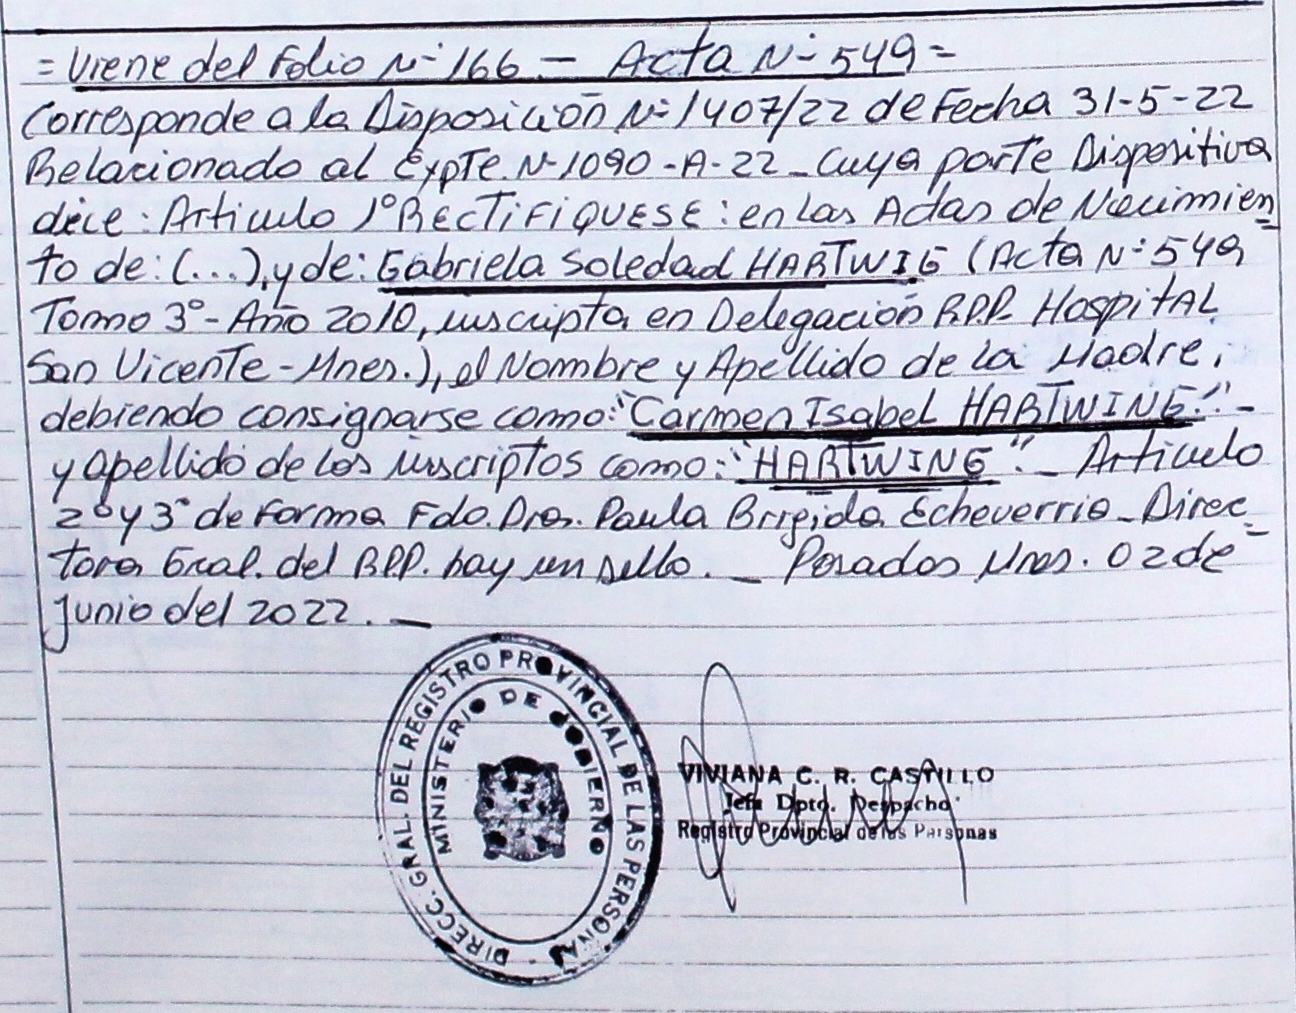 = Viene del Folio N° 166 - Acta N° 549 =
Corresponde a la Disposición N° 1407/22 de Fecha 31-5-22
Relacionado al Expte. N° 1090-A-22 _ Cuya parte Dispositiva
dice: Articulo 1° RECTIFIQUESE: en las Actas de Nacimien=
to de: (...), y de: Gabriela Soledad HARTWIG (Acta N° 549
Tomo 3° - Año 2010, inscripta en Delegación R.P.P. Hospital
San Vicente - Mnes.), el Nombre y Apellido de la Madre,
debiendo consignarse como: "Carmen Isabel HARTWING". -
y apellido de los inscriptos como: "HARTWING". _ Articulo
2° y 3° de forma Fdo. Dra. Paula Brigida Echeverria _ Direc=
tora Gral. del R.P.P. hay un sello. _ Posadas Mnes. 02 de
Junio del 2022. _
DIRECC. GRAL. DEL REGISTRO PROVINCIAL DE LAS PERSONAS -
MINISTERIO DE GOBIERNO
VIVIANA C. R. CASTILLO
Jefa Dpto. Despacho
Registro Provincial de las Personas